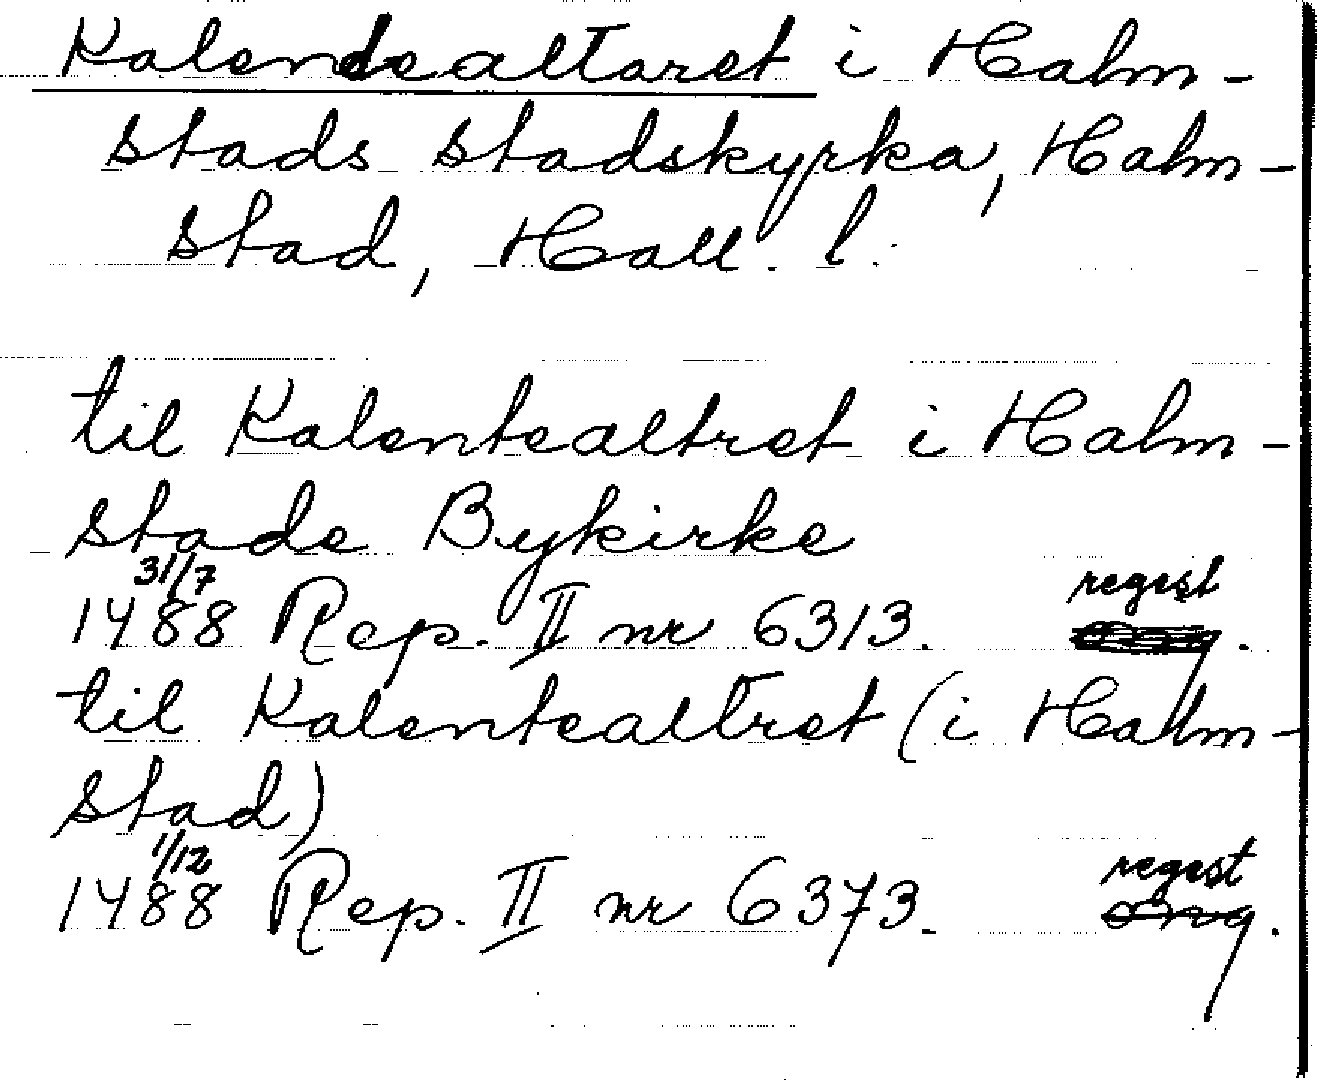 Kalendealtaret i Halm-
stads stadskyrka, Halm-
stad, Hall. l.
til Kalentealtret i Halm-
stads Bykirke
31/7 regest
1488 Rep. II nr 6313.
til Kalentealtret (i Halm-
stad)
1/12 regest
1488 Rep. II nr 6373. orig.